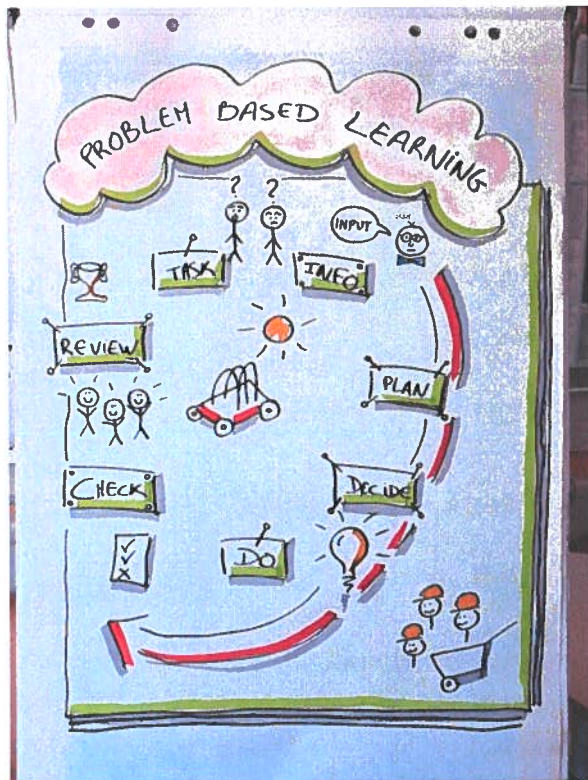 PROBLEM BASED LEARNING
? ?
INPUT
TASK
INFO
REVIEW
PLAN
CHECK
DECIDE
DO